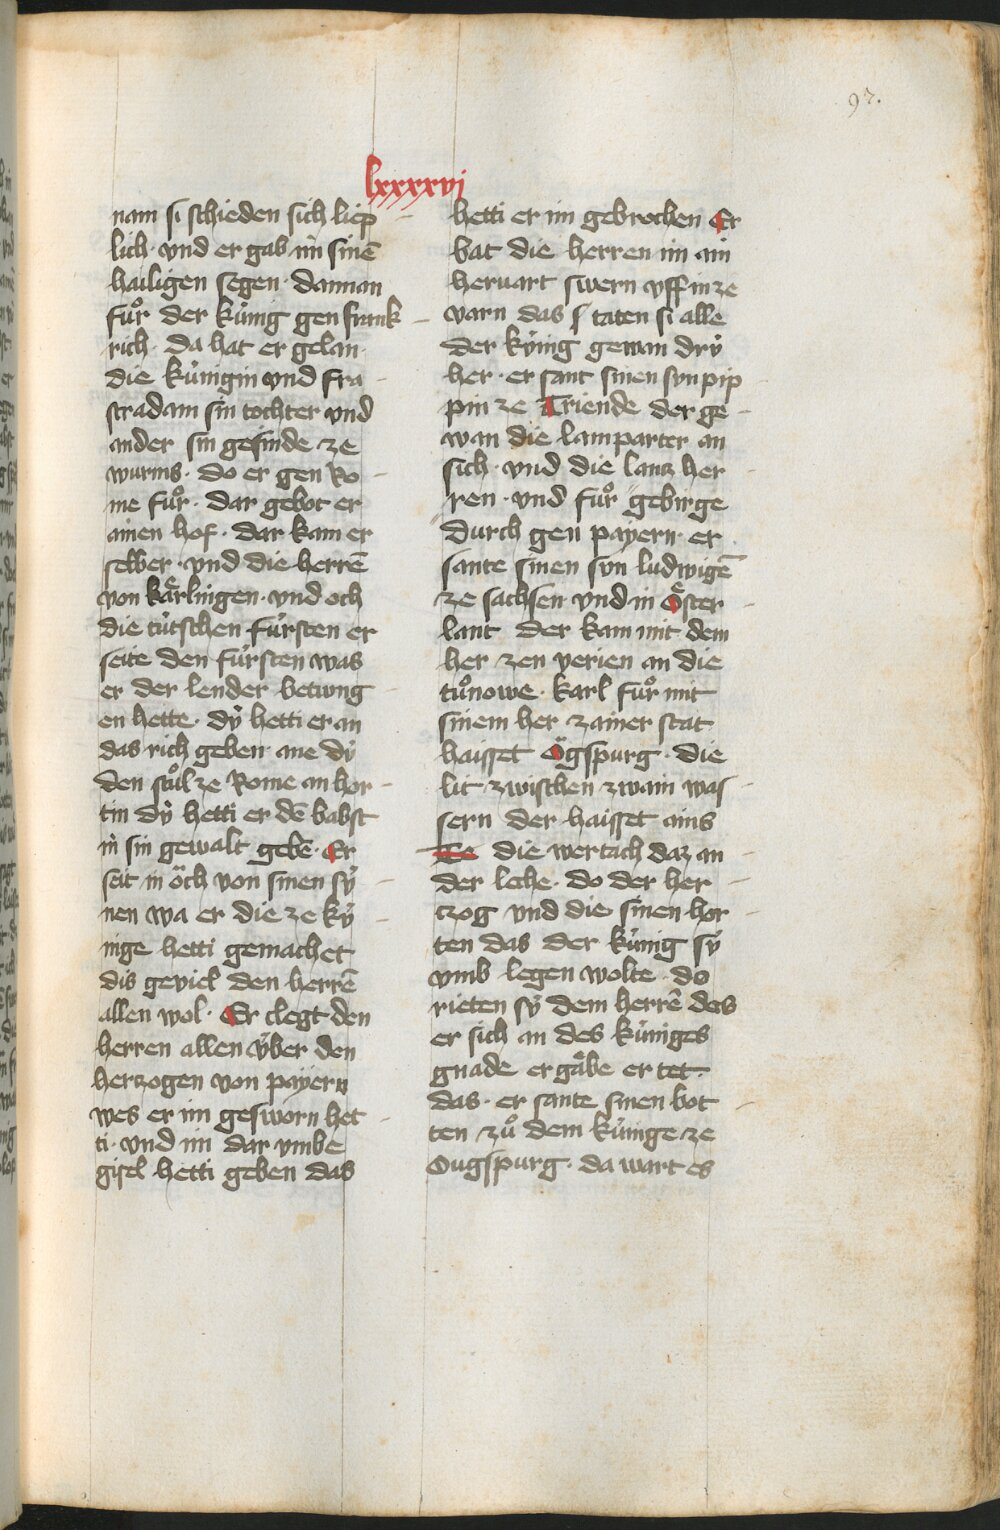 97.
lxxxxvj
nam si schieden sich liep
lich · vnd er gab im̄ sinē
hailigen segen · dannan
fuͦr der kuͥnig gen frank
rich · da hat er gelan
die kuͥnigin vnd fra
stradam sin tochter vnd
ander sin gesinde ze
wurms · do er gen Ro
me fuͦr · dar gebot er
ainen hof · dar kam er
selber · vnd die herrē
von kaͤrlingen · vnd och
die tuͥtschen fuͥrsten er
seite den fuͥrsten was
er der lender betwng
en hette · dÿ hetti er an
das rich geben ane dÿ
den stuͦl ze Rome an hor
tin dÿ hetti er dē babst
in sin gewalt gebē · Er
seit in och von sinen sÿ
nen wa er die ze kÿ
nige hetti gemachet
dis geviel den herrē
allen wol · Er clegt den
herren allen ÿber den
herzogen von payern
wes er im gesworn het
ti · vnd im dar vmbe
gisel hetti geben das
hetti er im gebrochen Er
bat die herren im ain
hervart swern vff in ze
varn das s taten si alle
der kÿnig gewan drÿ
her · er sant sinen svn pip
pin ze Triende der ge
wan die lamparter an
sich · vnd die lantz her
ren · vnd fuͦr gebirge
durch gen payern · er
sante sinen svn ludwigē
ze sachsen vnd in Oͤster
lant der kam mit dem
her zen verien an die
tuͦnowe · karl fuͦr mit
sinem her zainer stat
haisset Ögspurg · die
lit zwischen zwain was
sern der haisset ains
die wertach daz an
der leche · do der her
tzog vnd die sinen hor
ten das der kuͥnig sÿ
vmb legen wolte · do
rieten sÿ dem herrē des
er sich an des kuͥniges
gnade ergaͤbe er tet
das · er sante sinen bot
ten zuͦ dem kuͥnige ze
Ougspurg · da wart es